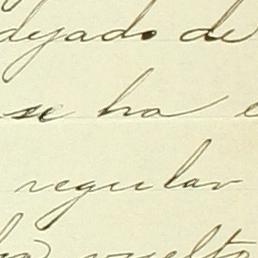 dejado de
se ha
regular
vuelto